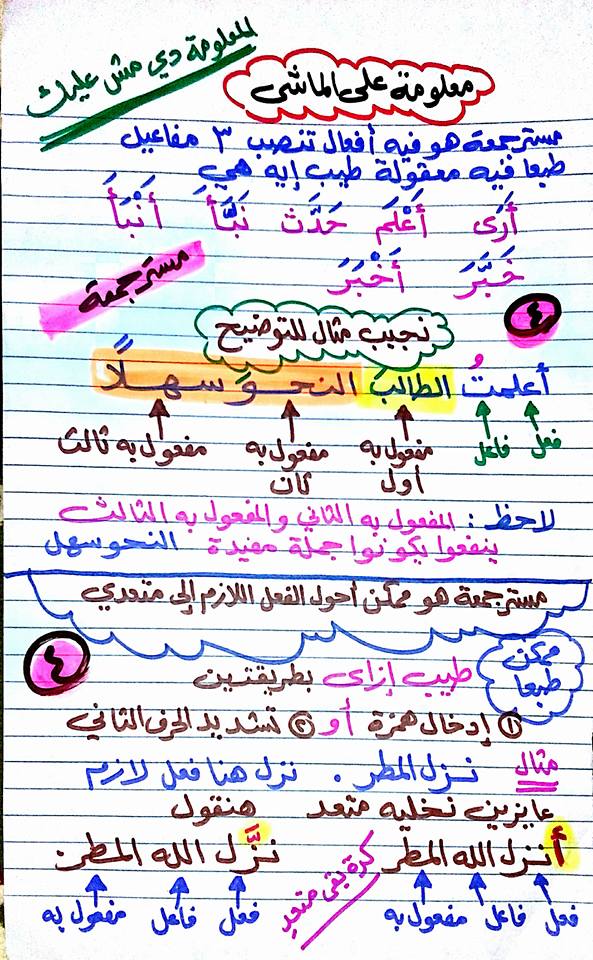 المعلومة دي مش عليك
معلومة على الماشى
مستر جمعة هو فيه أفعال تنصب ٣ مفاعيل
طبعا فيه معقولة طيب إيه هي
أَرَى أَعْلَم حَدَّث نَبَّأَ أَنْبَأَ
خَبَّرَ أَخْبَرَ
مستر جمعة
٤
نجيب مثال للتوضيح
أعلمتُ الطالبَ النحوَ سهلًا
فعل فاعل مفعول به مفعول به مفعول به ثالث
أول ثان
لاحظ : المفعول به الثاني والمفعول به الثالث
ينفعوا يكونوا جملة مفيدة النحو سهل
مستر جمعة هو ممكن أحول الفعل اللازم إلى متعدي
ممكن
طبعا
٤
طيب إزاى بطريقتين
١ إدخال همزة أو ٢ تشديد الحرف الثاني
مثال نزل المطر . نزل هنا فعل لازم
عايزين نخليه متعد هنقول
أنزل الله المطر نزَّل الله المطر
كدة بقى متعدٍ
فعل فاعل مفعول به فعل فاعل مفعول به